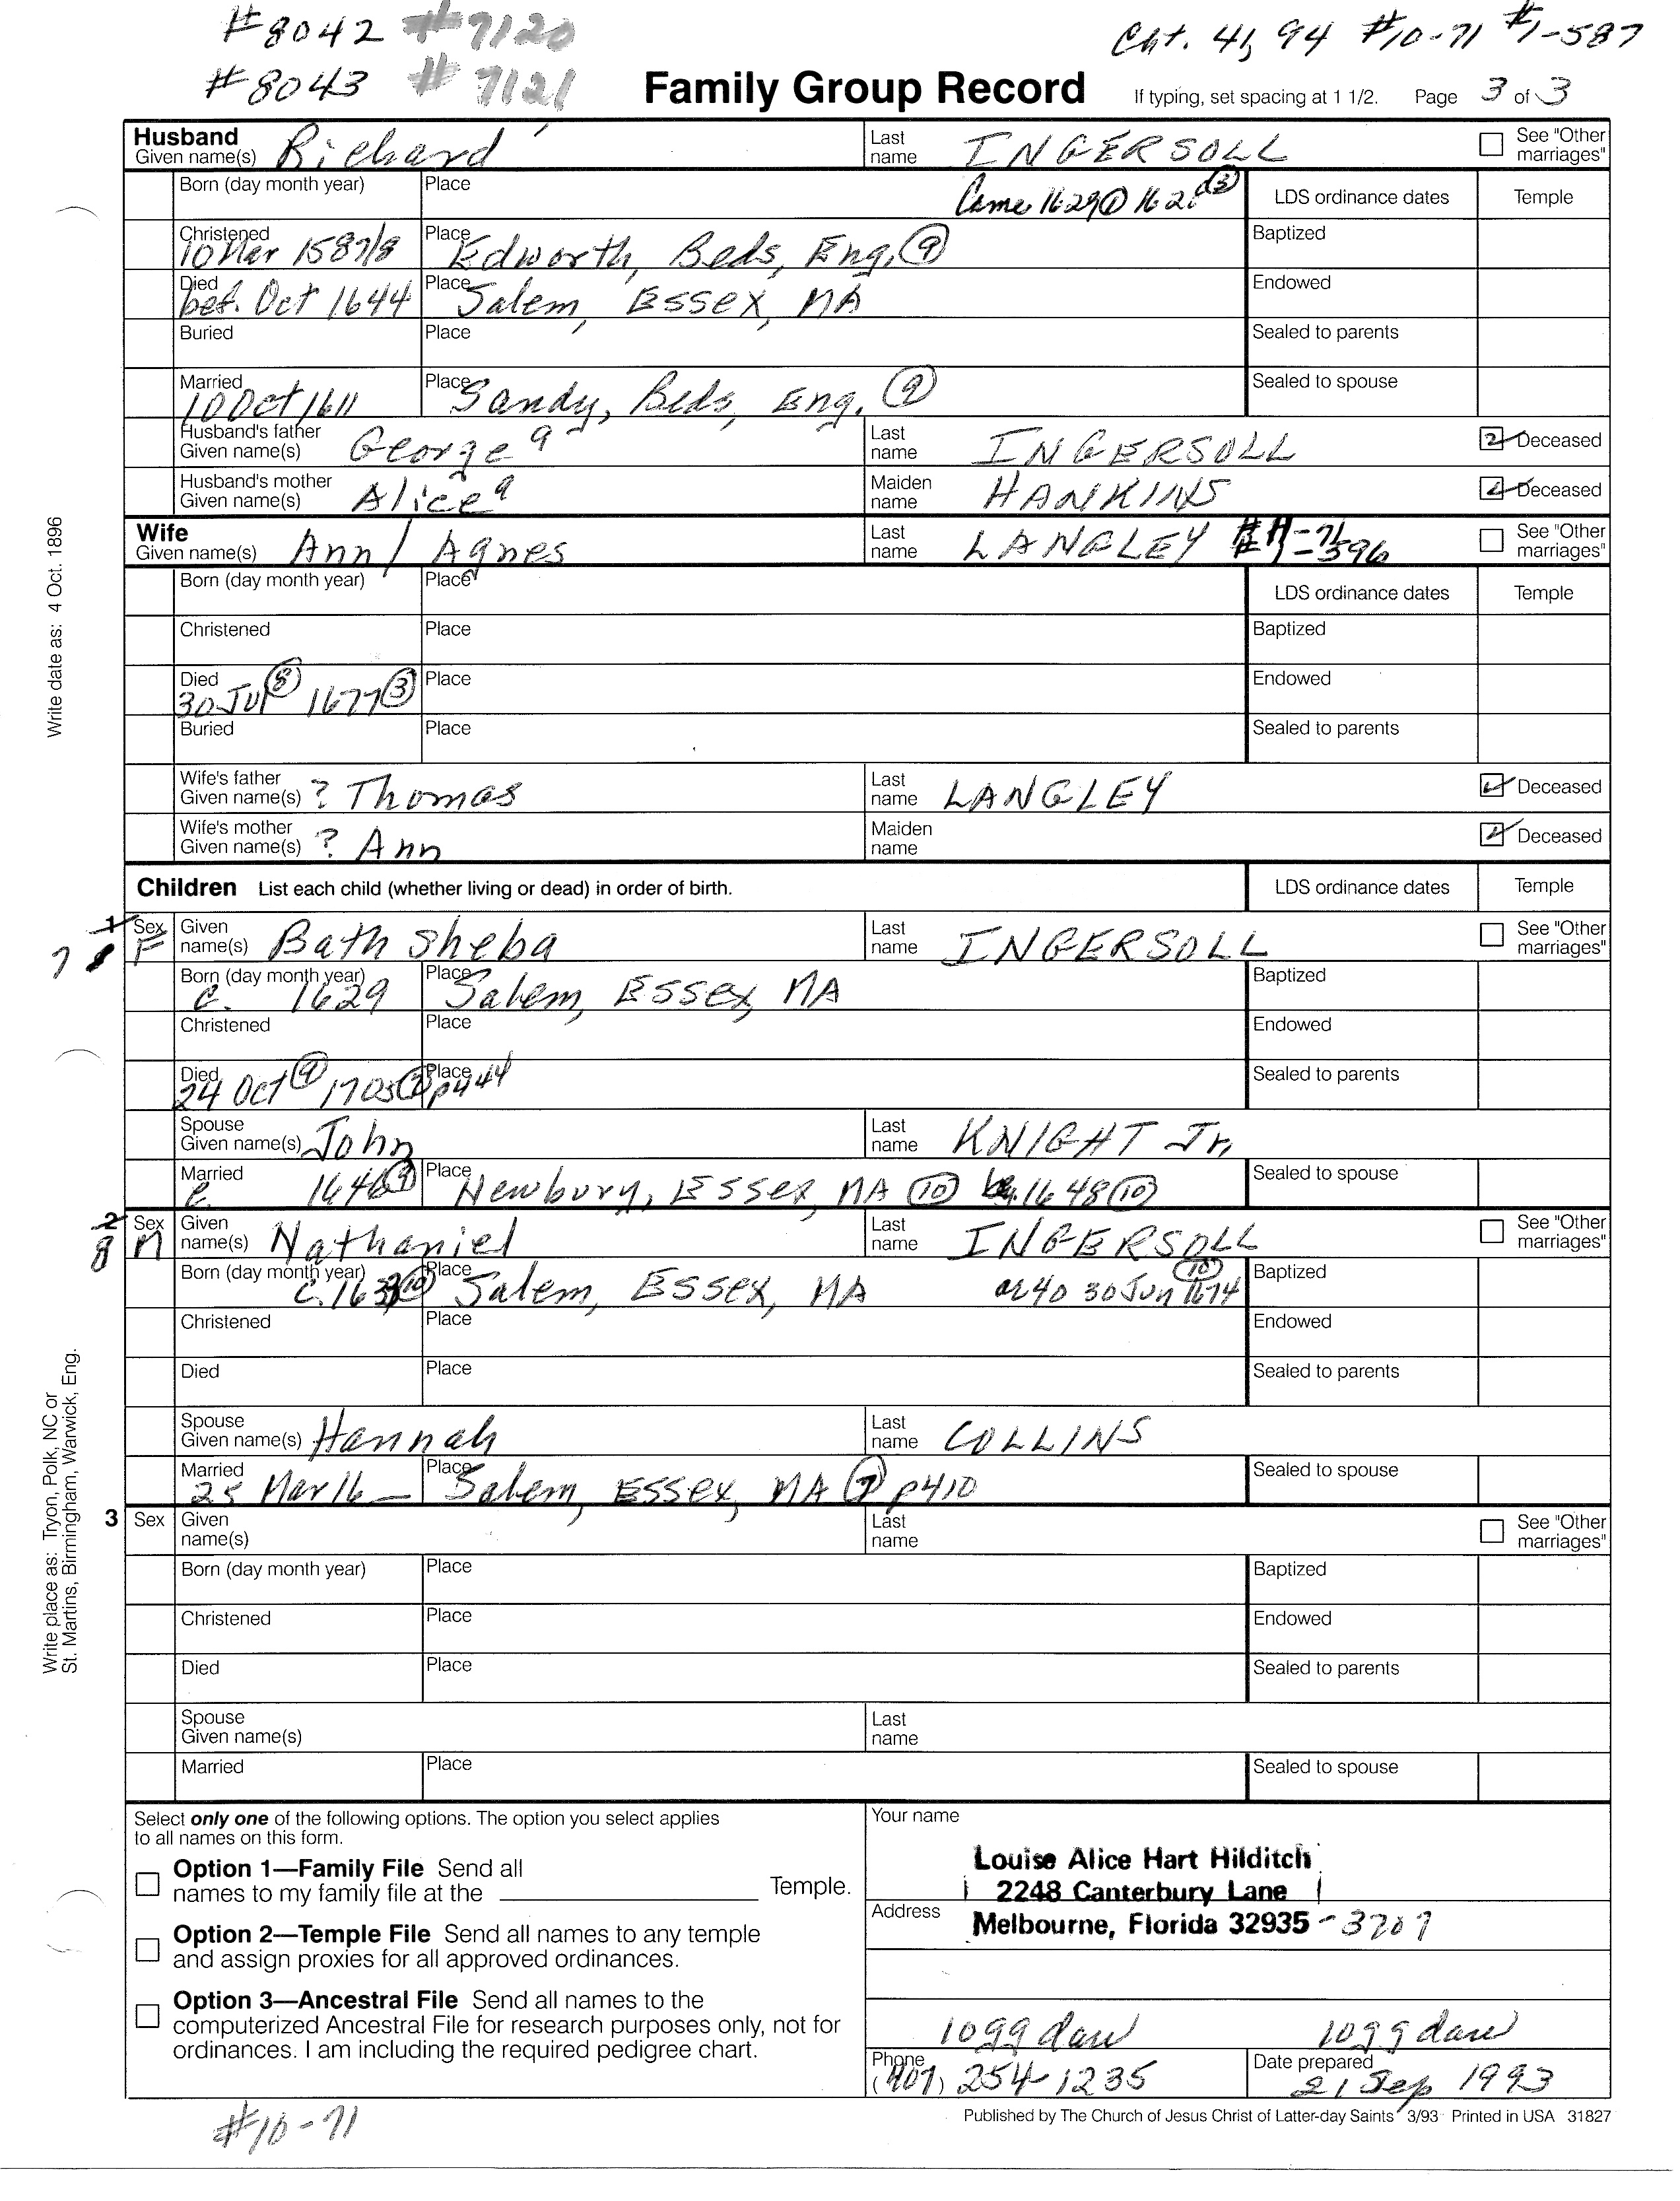 #8042 #7120
Cht. 41, 94 #10-71 #1-587
#8043 #7121
Family Group Record
If typing, set spacing at 1 1/2. Page 3 of 3
Husband
Given name(s) Richard
Last name INGERSOLL
See "Other marriages"
Born (day month year) Place
Came 1629
LDS ordinance dates Temple
Christened 10 Mar 1587/8 Place Edworth, Beds, Eng. 9
Baptized
Died bef. Oct 1644 Place Salem, Essex, MA
Endowed
Buried Place
Sealed to parents
Married 10 Oct 1611 Place Sandy, Beds, Eng. 9
Sealed to spouse
Husband's father Given name(s) George 9
Last name INGERSOLL
Deceased
Husband's mother Given name(s) Alice 9
Maiden name HANKINS
Deceased
Wife
Given name(s) Ann / Agnes
Last name LANGLEY
See "Other marriages"
Born (day month year) Place
LDS ordinance dates Temple
Christened Place
Baptized
Died 30 Jul 8 1677 3 Place
Endowed
Buried Place
Sealed to parents
Wife's father Given name(s) ? Thomas
Last name LANGLEY
Deceased
Wife's mother Given name(s) ? Ann
Maiden name
Deceased
Children List each child (whether living or dead) in order of birth.
LDS ordinance dates Temple
1 7 Sex F Given name(s) Bath sheba
Last name INGERSOLL
See "Other marriages"
Born (day month year) c. 1629 Place Salem, Essex, MA
Baptized
Christened Place
Endowed
Died 24 Oct 9 1705 Place p444
Sealed to parents
Spouse Given name(s) John
Last name KNIGHT Jr.
Married c. 1646 9 Place Newbury, Essex, MA 10 1648 10
Sealed to spouse
2 8 Sex M Given name(s) Nathaniel
Last name INGERSOLL
See "Other marriages"
Born (day month year) c. 163 10 Place Salem, Essex, MA 40 30 Jun 1674 10
Baptized
Christened Place
Endowed
Died Place
Sealed to parents
Spouse Given name(s) Hannah
Last name COLLINS
Married 25 Mar 16_ Place Salem, Essex, MA 7 p410
Sealed to spouse
3 Sex Given name(s)
Last name
See "Other marriages"
Born (day month year) Place
Baptized
Christened Place
Endowed
Died Place
Sealed to parents
Spouse Given name(s)
Last name
Married Place
Sealed to spouse
Write date as: 4 Oct. 1896
Write place as: Tryon, Polk, NC or
St. Martins, Birmingham, Warwick, Eng.
Select only one of the following options. The option you select applies
to all names on this form.
Option 1—Family File Send all
names to my family file at the Temple.
Option 2—Temple File Send all names to any temple
and assign proxies for all approved ordinances.
Option 3—Ancestral File Send all names to the
computerized Ancestral File for research purposes only, not for
ordinances. I am including the required pedigree chart.
Your name
Louise Alice Hart Hilditch
2248 Canterbury Lane
Address
Melbourne, Florida 32935-3707
Phone (407) 254-1235
Date prepared 21 Sep 1993
#10-71
Published by The Church of Jesus Christ of Latter-day Saints 3/93 Printed in USA 31827